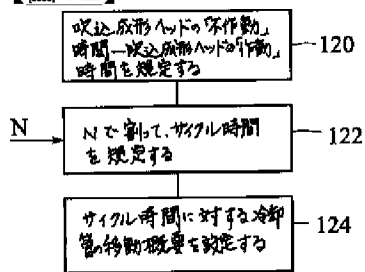 吹込成形ヘッドの「不作動」
時間—吹込成形ヘッドの「作動」
時間を規定する
120
N
Nで割って、サイクル時間
を規定する
122
サイクル時間に対する冷却
管の移動概要を設定する
124